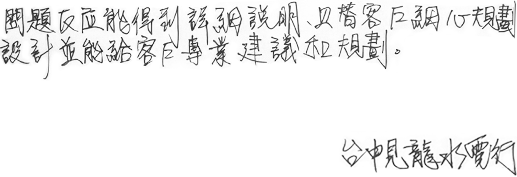 問題反应能得到詳細説明且替客戶細心規劃
設計並能給客戶專業建議和規劃。
台中見龍水電行